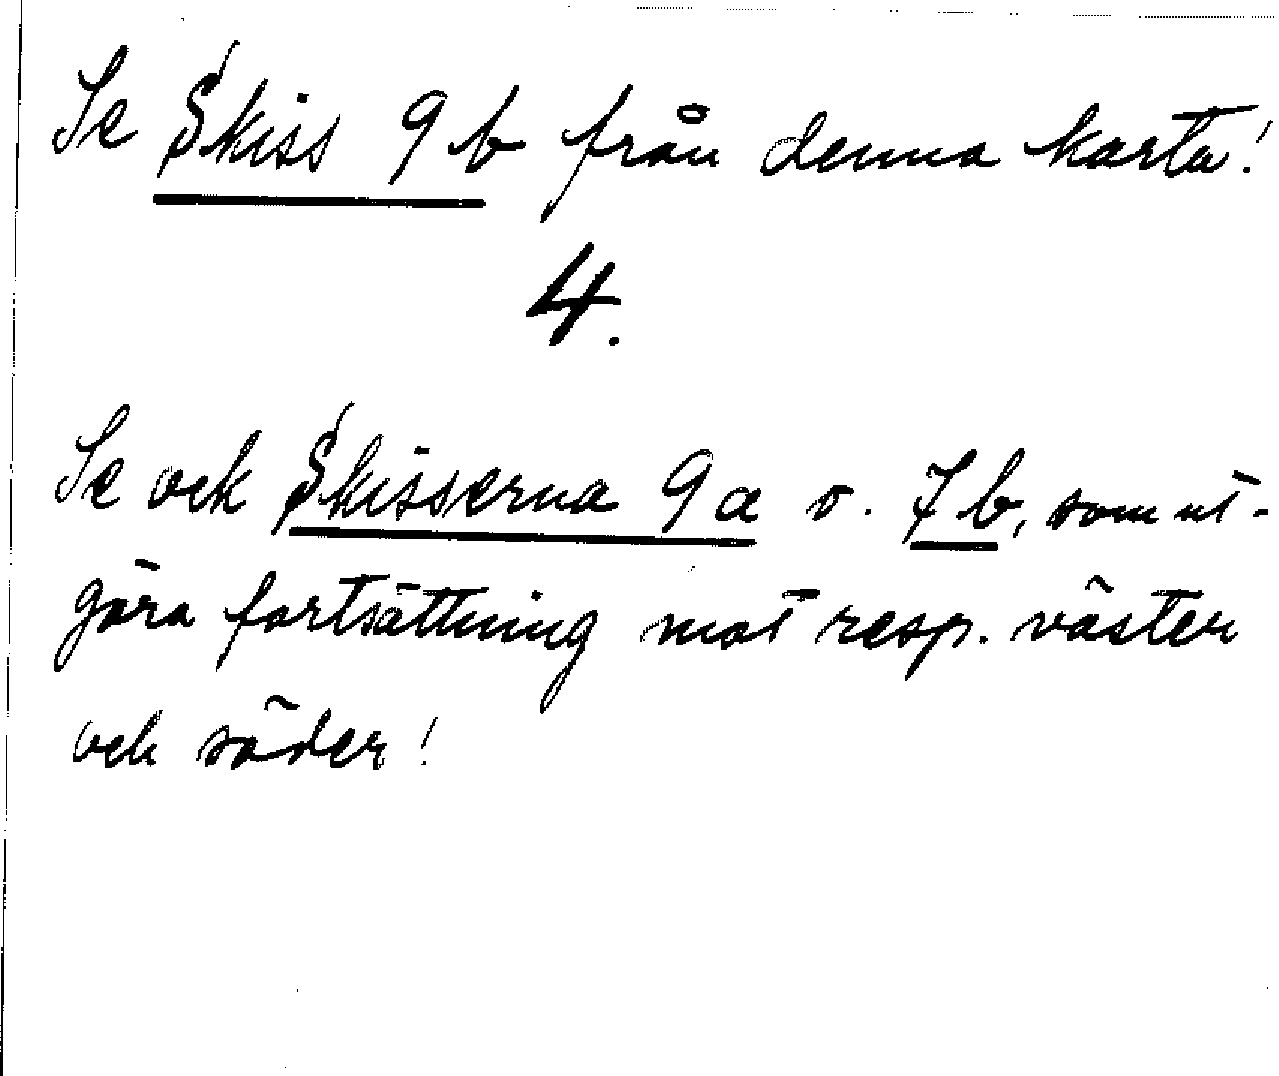 Se Skiss 9b från denna karta!
4.
Se ock Skisserna 9a o. 7b, som ut-
göra fortsättning mot resp. väster
och söder!